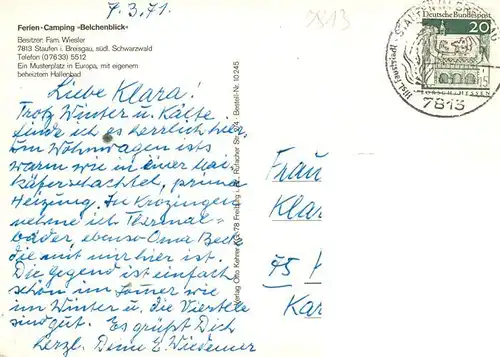 7.3.71.
7813
Ferien-Camping »Belchenblick«
Besitzer: Fam. Wiesler
7813 Staufen i. Breisgau, südl. Schwarzwald
Telefon (07633) 5512
Ein Musterplatz in Europa, mit eigenem
beheiztem Hallenbad
Liebe Klara!
Trotz Winter u. Kälte
finde ich es herrlich hier,
im Wohnwagen ists
warm wie in einer Mai-
käferschachtel, prima
Heizung. In Krozingen
nehme ich Thermal-
bäder, ebenso Oma
die mit mir hier ist.
Die Gegend ist einfach
schön im Sommer wie
im Winter u. die Viertele
sind gut. Es grüßt Dich
herzl. Deine E. Wiedemer
Verlag Otto Kehrer KG · 78 Freiburg i. Br., Rufacher Str. 2/4 · Bestell-Nr. 10245
Deutsche Bundespost
20
LORSCH/HESSEN
7813
Frau
Kla
75
Kar